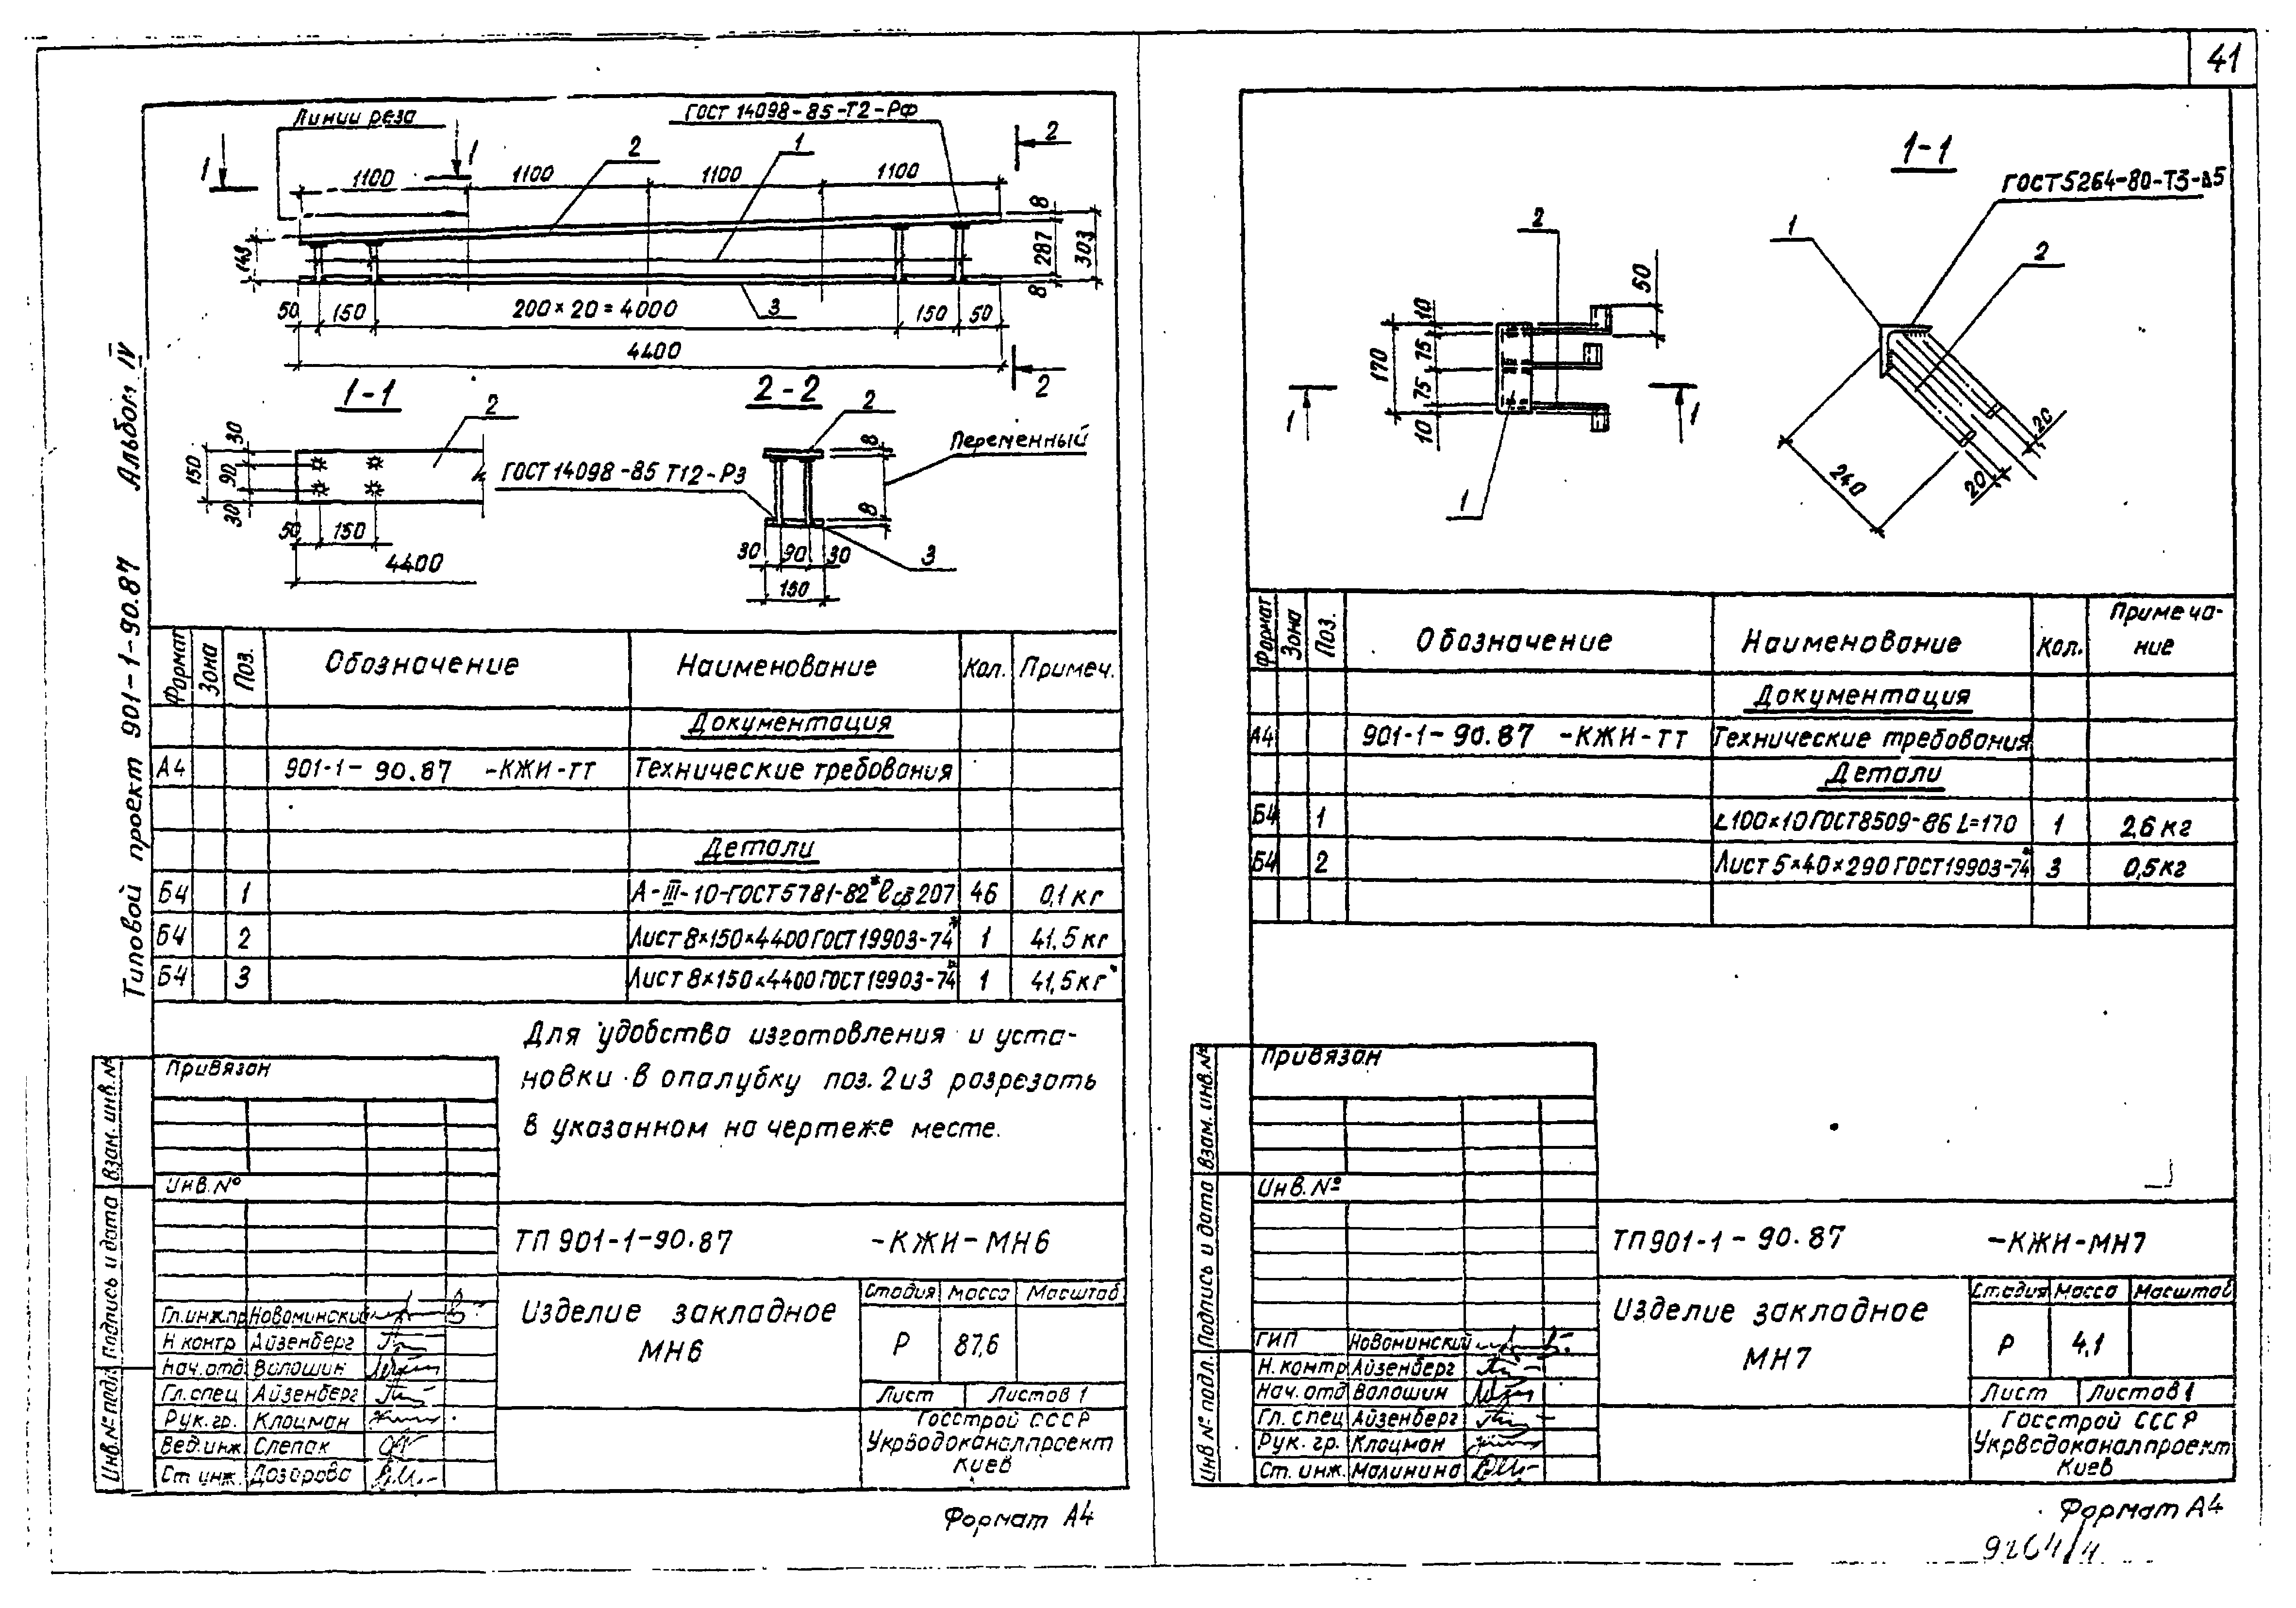 41
Типовой проект 901-1-90.87 Альбом IV
Линии реза
ГОСТ 14098-85-Т2-Рф
1 1 2 1 2
1100 1100 1100 1100
8
287
303
8
143
50 150 200×20=4000 3 150 50
4400
2
1-1
2
30
90
30
150
50 150
4400
2-2
2
8
Переменный
ГОСТ 14098-85 Т12-Р3
8
30 90 30
3
150
Формат Зона Поз. Обозначение Наименование Кол. Примеч.
Документация
А4 901-1-90.87 -КЖИ-ТТ Технические требования
Детали
Б4 1 А-III-10-ГОСТ5781-82* lср207 46 0,1 кг
Б4 2 Лист 8×150×4400 ГОСТ19903-74* 1 41,5 кг
Б4 3 Лист 8×150×4400 ГОСТ19903-74* 1 41,5 кг
Для удобства изготовления и уста-
новки в опалубку поз. 2 и 3 разрезать
в указанном на чертеже месте.
Привязан
Инв. №
Взам. инв. №
Подпись и дата
Инв. № подл.
ТП 901-1-90.87 -КЖИ-МН6
Гл.инж.пр Новоминский
Н контр Айзенберг
Нач. отд Волошин
Гл. спец Айзенберг
Рук. гр. Клоцман
Вед.инж Слепак
Ст инж. Дозорова
Изделие закладное
МН6
Стадия Масса Масштаб
Р 87,6
Лист Листов 1
Госстрой СССР
Укрводоканалпроект
Киев
Формат А4
1-1
ГОСТ5264-80-Т3-⊿5
1
2
20
20
240
2
50
10
75
75
10
170
1 1
1
Формат Зона Поз. Обозначение Наименование Кол. Примеча-
ние
Документация
А4 901-1-90.87 -КЖИ-ТТ Технические требования
Детали
Б4 1 L100×10 ГОСТ8509-86 L=170 1 2,6 кг
Б4 2 Лист 5×40×290 ГОСТ19903-74* 3 0,5 кг
Привязан
Инв. №
Взам. инв. №
Подпись и дата
Инв № подл.
ТП901-1-90.87 -КЖИ-МН7
ГИП Новоминский
Н. контр Айзенберг
Нач. отд Волошин
Гл. спец Айзенберг
Рук. гр. Клоцман
Ст. инж. Малинина
Изделие закладное
МН7
Стадия Масса Масштаб
Р 4,1
Лист Листов 1
Госстрой СССР
Укрводоканалпроект
Киев
Формат А4
9264/4